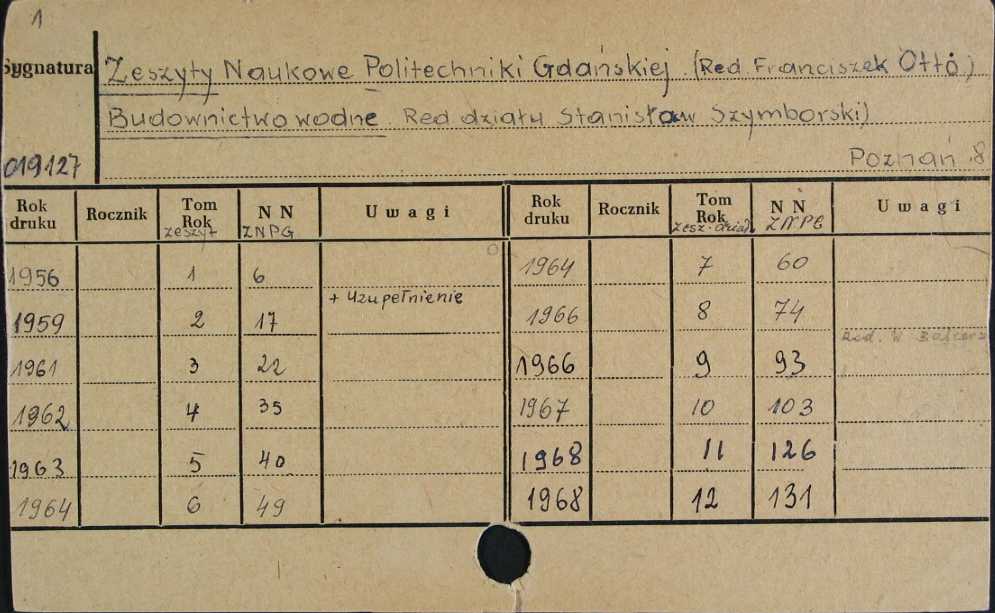 1
Sygnatura
Zeszyty Naukowe Politechniki Gdańskiej (Red. Franciszek Otto)
Budownictwo wodne Red działu Stanisław Szymborski)
019127
Poznań 8
Rok druku Rocznik Tom Rok zeszyt N N ZNPG Uwagi Rok druku Rocznik Tom Rok N N ZNPG Uwagi
1956 1 6 1964 7 60
+ Uzupełnienie
1959 2 17 1966 8 74
Red. W
1961 3 22 1966 9 93
1962 4 35 1967 10 103
1963 5 40 1968 11 126
1964 6 49 1968 12 131